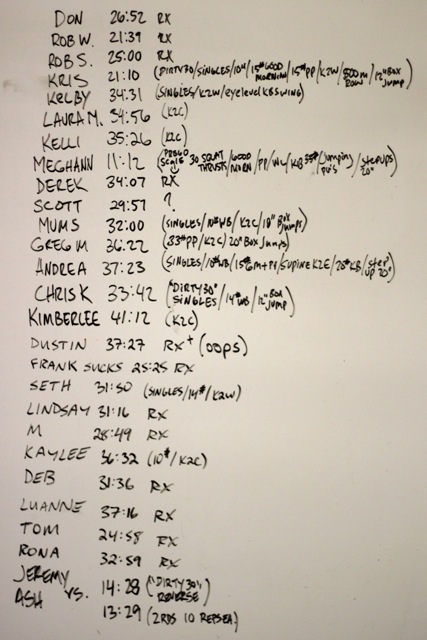 DON 26:52 RX
ROB W. 21:39 RX
ROB S. 25:00 RX
KRIS 21:10 (DIRTY30/SINGLES/10#/15# GOOD MORNING/15# PP/K2W/500m ROW/12" BOX JUMP)
KELBY 34:31 (SINGLES/K2W/eyelevel KB SWING)
LAURA M. 34:56 (K2C)
KELLI 35:26 (K2C)
MEGHANN 11:12 (SCALE 30 SQUAT THRUSTS/GOOD MORN/PP/WL/KB 35#/Jumping PU'S/STEPUPS 20")
DEREK 34:07 RX
SCOTT 29:57 ?
MUMS 32:00 (SINGLES/10#WB/K2C/18" BOX JUMPS)
GREG M 36:22 (33# PP/K2C) 20" BOX JUMPS)
ANDREA 37:23 (SINGLES/10#WB/15# GM+PP/SUPINE K2E/26# KB/STEP UP 20")
CHRIS K 33:42 ("DIRTY 30" SINGLES/14# WB/12" BOX JUMP)
KIMBERLEE 41:12 (K2C)
DUSTIN 37:27 RX+ (OOPS)
FRANK SUCKS 25:25 RX
SETH 31:50 (SINGLES/14#/K2W)
LINDSAY 31:16 RX
M 28:49 RX
KAYLEE 36:32 (10#/K2C)
DEB 31:36 RX
LUANNE 37:16 RX
TOM 24:58 RX
RONA 32:59 RX
JEREMY VS. 14:28 ("DIRTY 30'S" REVERSE)
ASH 13:29 (2RDS 10 REPSEA)